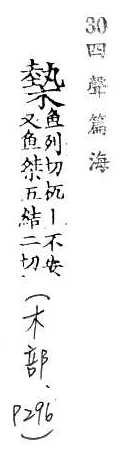 30四聲篇海
槷魚列切杌丨不安
又魚桀五結二切
(木部、
P296)